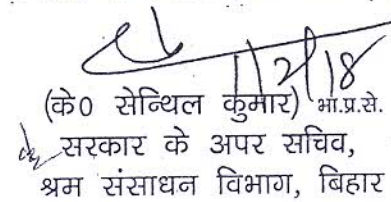 1/2/18
(के0 सेन्थिल कुमार) भा.प्र.से.
सरकार के अपर सचिव,
श्रम संसाधन विभाग, बिहार